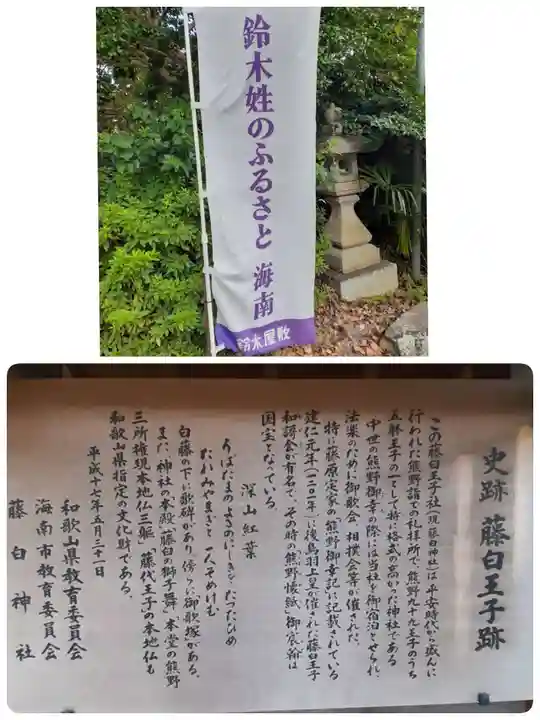 鈴木姓のふるさと 海南
鈴木屋敷
史跡 藤白王子跡
この藤白王子社(現、藤白神社)は平安時代から盛んに
行われた熊野詣での礼拝所で、熊野九十九王子のうち
五躰王子の一として特に格式の高かった神社である
中世の熊野御幸の際には当社を御宿泊とせられ、
法楽のために御歌会、相撲会等が催された。
特に藤原定家の「熊野御幸記」に記載されている
建仁元年(一二〇一年)に後鳥羽上皇が催された藤白王子
和謌会が有名で、その時の「熊野懐紙」御宸翰は
国宝となっている。
深山紅葉
うばたまのよるのにしきをたつたひめ
たれみやまぎと一人そめけむ
白藤の下に歌碑があり、傍らに御歌塚がある。
また、神社の本殿、「藤白の獅子舞」、本堂の熊野
三所権現本地仏三躯、藤代王子の本地仏も
和歌山県指定の文化財である。
平成十七年五月二十一日
和歌山県教育委員会
海南市教育委員会
藤白神社